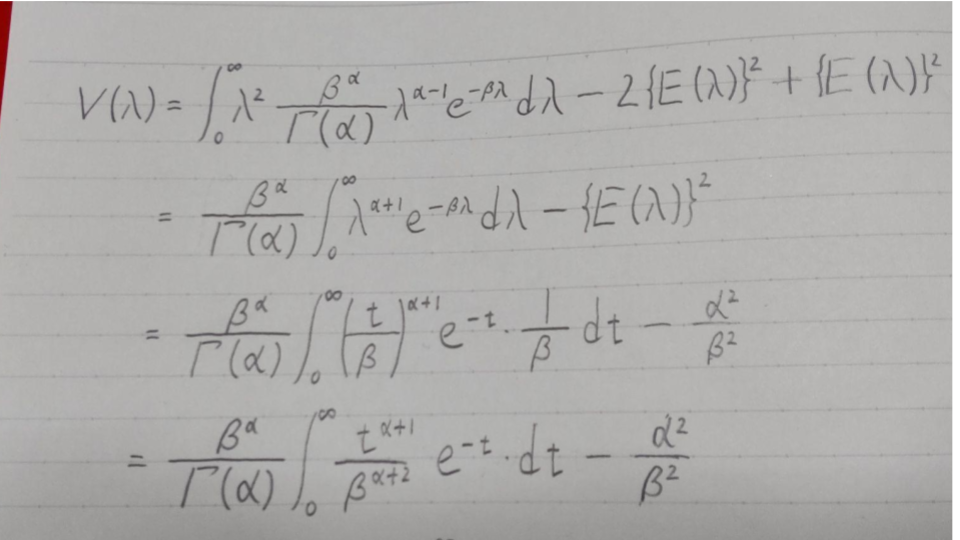 V(λ) = ∫₀^∞ λ² β^α/Γ(α) λ^(α-1) e^(-βλ) dλ - 2{E(λ)}² + {E(λ)}²
= β^α/Γ(α) ∫₀^∞ λ^(α+1) e^(-βλ) dλ - {E(λ)}²
= β^α/Γ(α) ∫₀^∞ (t/β)^(α+1) e^(-t) · 1/β dt - α²/β²
= β^α/Γ(α) ∫₀^∞ t^(α+1)/β^(α+2) e^(-t) · dt - α²/β²